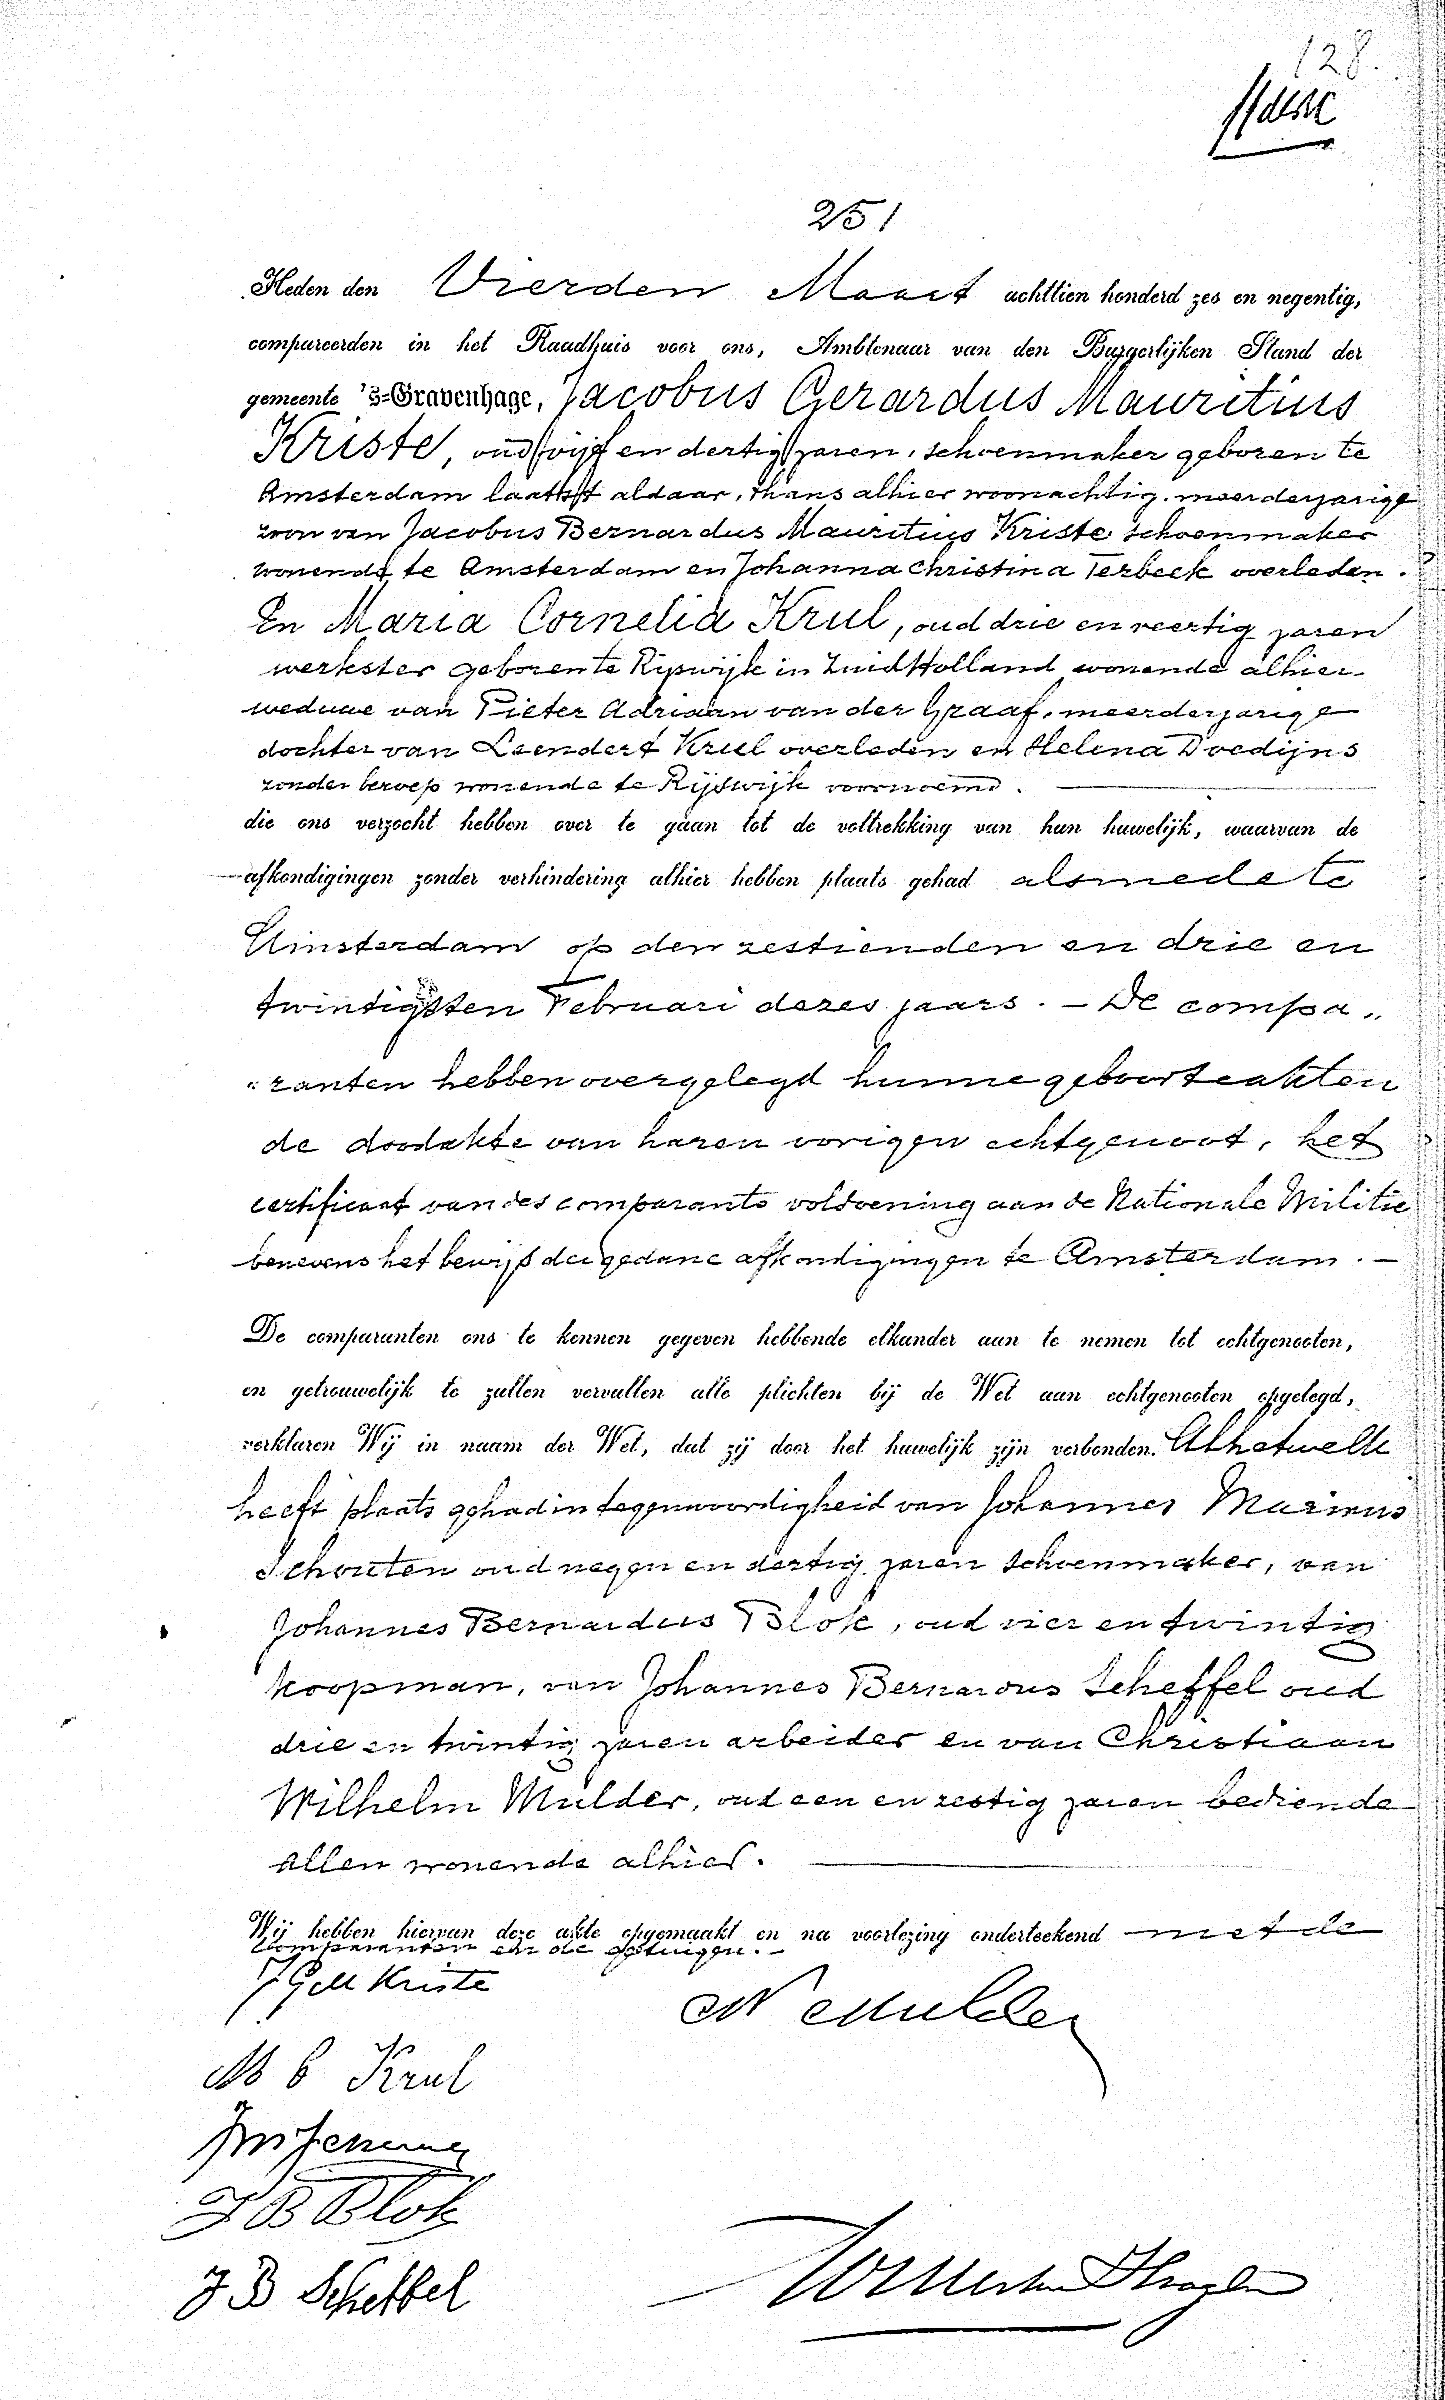 128.
251
Heden den Vierden Maart achttien honderd zes en negentig,
compareerden in het Raadhuis voor ons, Ambtenaar van den Burgerlijken Stand der
gemeente 's-Gravenhage, Jacobus Gerardus Mauritius
Kriste, oud vijf en dertig jaren, schoenmaker geboren te
Amsterdam laatst aldaar, thans alhier woonachtig, meerderjarige
zoon van Jacobus Bernardus Mauritius Kriste schoenmaker
wonende te Amsterdam en Johanna Christina Terbeek overleden.
En Maria Cornelia Krul, oud drie en veertig jaren
werkster geboren te Rijswijk in Zuid Holland wonende alhier
weduwe van Pieter Adriaan van der Graaf, meerderjarige
dochter van Leendert Krul overleden en Helena Doedijns
zonder beroep wonende te Rijswijk voornoemd.
die ons verzocht hebben over te gaan tot de voltrekking van hun huwelijk, waarvan de
afkondigingen zonder verhindering alhier hebben plaats gehad alsmede te
Amsterdam op den zestienden en drie en
twintigsten Februari dezes jaars. – De compa„
„ranten hebben overgelegd hunne geboorteakten
de doodakte van haren vorigen echtgenoot, het
certificaat van des comparants voldoening aan de Nationale Militie
benevens het bewijs der gedane afkondigingen te Amsterdam. –
De comparanten ons te kennen gegeven hebbende elkander aan te nemen tot echtgenooten,
en getrouwelijk te zullen vervullen alle plichten bij de Wet aan echtgenooten opgelegd,
verklaren Wij in naam der Wet, dat zij door het huwelijk zijn verbonden. Al hetwelk
heeft plaats gehad in tegenwoordigheid van Johannes Marinus
Schouten oud negen en dertig jaren schoenmaker, van
Johannes Bernardus Blok, oud vier en twintig
koopman, van Johannes Bernardus Scheffel oud
drie en twintig jaren arbeider en van Christiaan
Wilhelm Mulder, oud een en zestig jaren bediende
allen wonende alhier.
Wij hebben hiervan deze akte opgemaakt en na voorlezing onderteekend met de
Comparanten en de getuigen. –
J G M Kriste
C W Mulder
M C Krul
J B Blok
J B Scheffel